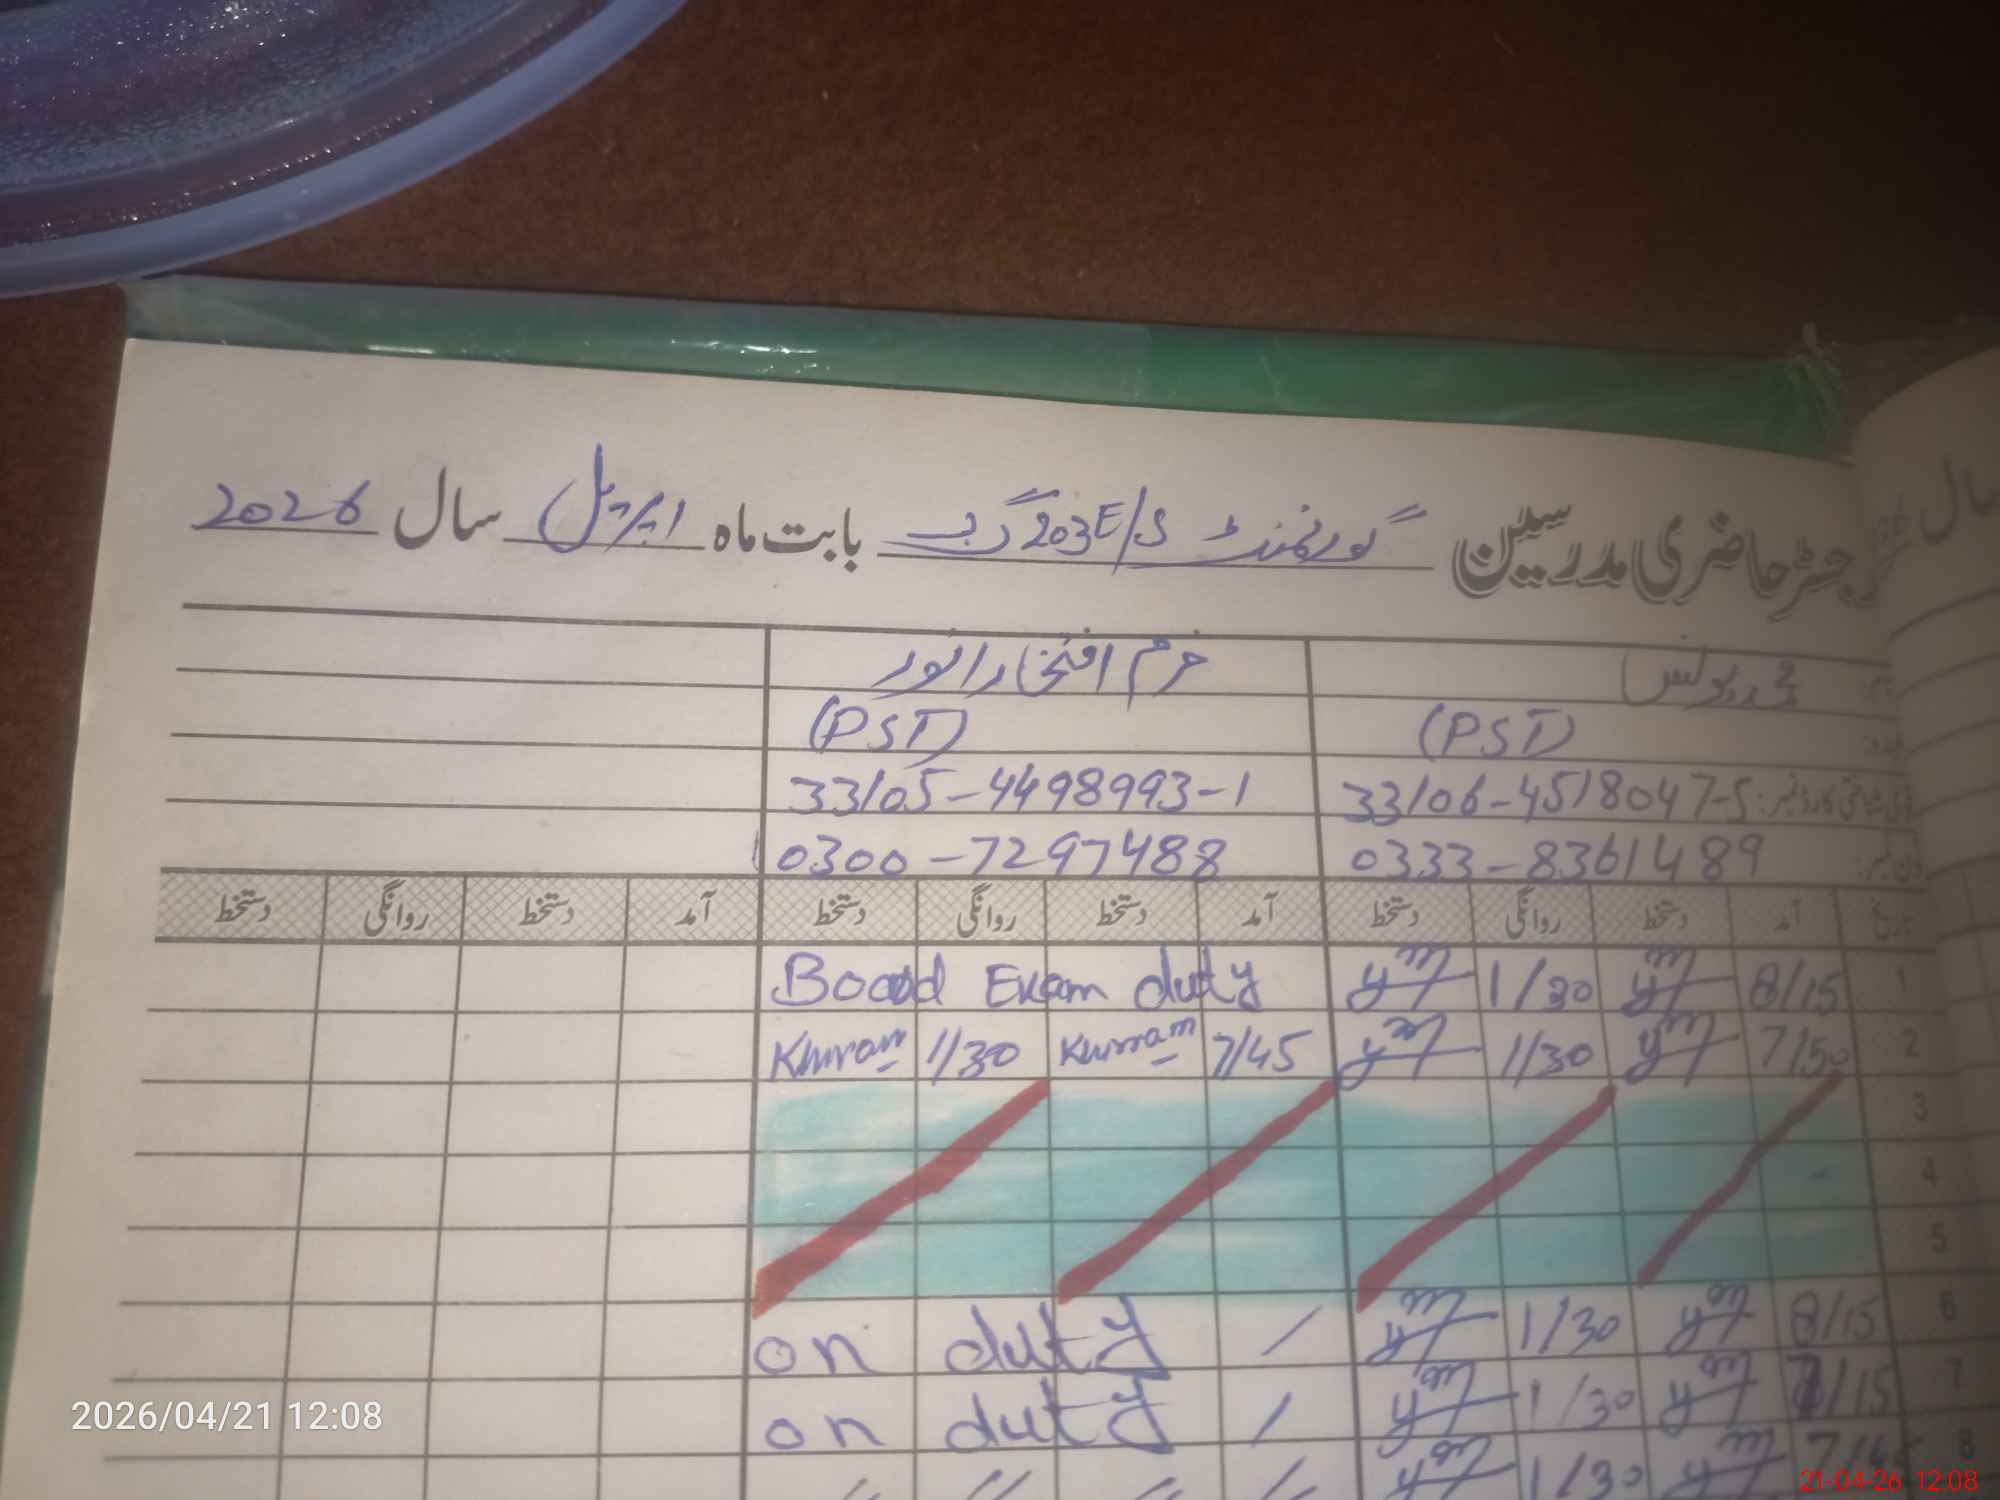 رجسٹر حاضری مدرسین گورنمنٹ E/S 203 گ ب بابت ماہ اپریل سال 2026
سال
محمد یونس خرم افتخار انور
(PST) (PST)
شناختی کارڈ نمبر: 33106-4518047-5 33105-4498993-1
فون نمبر: 0333-8361489 0300-7297488
تاریخ آمد دستخط روانگی دستخط آمد دستخط روانگی دستخط آمد دستخط روانگی دستخط
1 8/15 1/30 Board Exam duty
2 7/50 1/30 7/45 Khurram 1/30 Khurram
3
4
5
6 8/15 1/30 / on duty
7 /15 1/30 / on duty
8 7/45 1/30 / // // //
2026/04/21 12:08
21-04-26 12:08